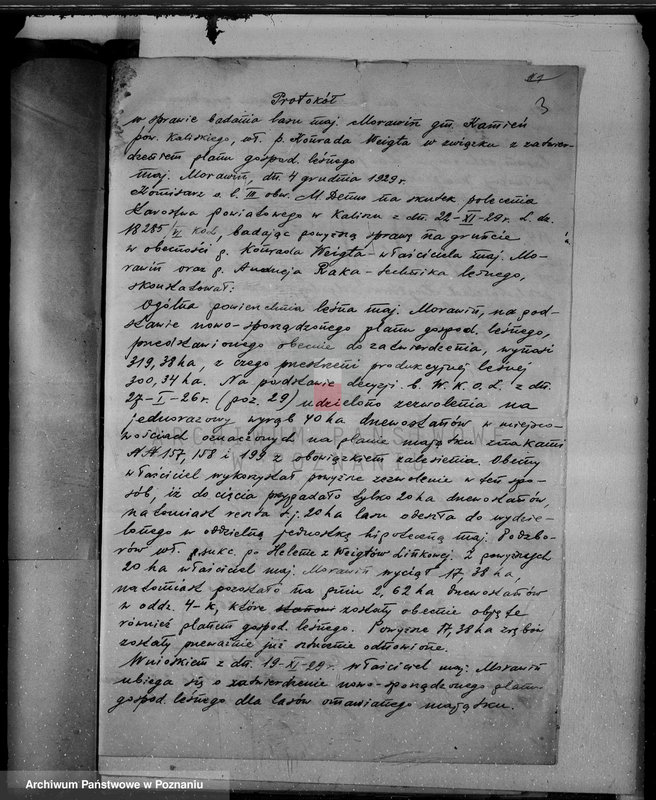 3
Protokół
w sprawie badania lasu maj. Morawin gm. Kamień
pow. Kaliskiego, wł. p. Konrada Weigta w związku z zatwier-
dzeniem planu gospod. leśnego
maj. Morawin, dn. 4 grudnia 1929 r.
Komisarz o. l. III obw. M. na skutek polecenia
Starostwa Powiatowego w Kaliszu z dn. 22-XI-29 r. L. dz.
18285/ badając powyższą sprawę na gruncie
w obecności p. Konrada Weigta - właściciela maj. Mo-
rawin oraz p. Andrzeja Raka - technika leśnego,
skonstatował:
Ogólna powierzchnia leśna maj. Morawin, na pod-
stawie nowo-sporządzonego planu gospod. leśnego,
przedstawionego obecnie do zatwierdzenia, wynosi
319,38 ha, z czego przestrzeni produkcyjnej leśnej
300,34 ha. Na podstawie decyzji b. W.K.O.L. z dn.
27-I-26 r. (poz. 29) udzielono zezwolenia na
jednorazowy wyrąb 40 ha drzewostanów w miejsco-
wościach oznaczonych na planie majątku znakami
NN 157, 158 i 199 z obowiązkiem zalesienia. Obecny
właściciel wykorzystał powyższe zezwolenie w ten spo-
sób, iż do cięcia przypadało tylko 20 ha drzewostanów,
natomiast reszta t.j. 20 ha lasu odeszła do wydzie-
lonego w oddzielną jednostkę hipoteczną maj. Podzbo-
rów wł. sukc. po Helenie z Weigtów Linkowej. Z powyższych
20 ha właściciel maj. Morawin wyciął 17,38 ha,
natomiast pozostało na pniu 2,62 ha drzewostanów
w oddz. 4-k, które zostały obecnie objęte
również planem gospod. leśnego. Powyższe 17,38 ha zrębów
zostały przeważnie już sztucznie odnowione.
Wnioskiem z dn. 19-XI-29 r. właściciel maj. Morawin
ubiega się o zatwierdzenie nowo-sporządzonego planu
gospod. leśnego dla lasów omawianego majątku.
Archiwum Państwowe w Poznaniu